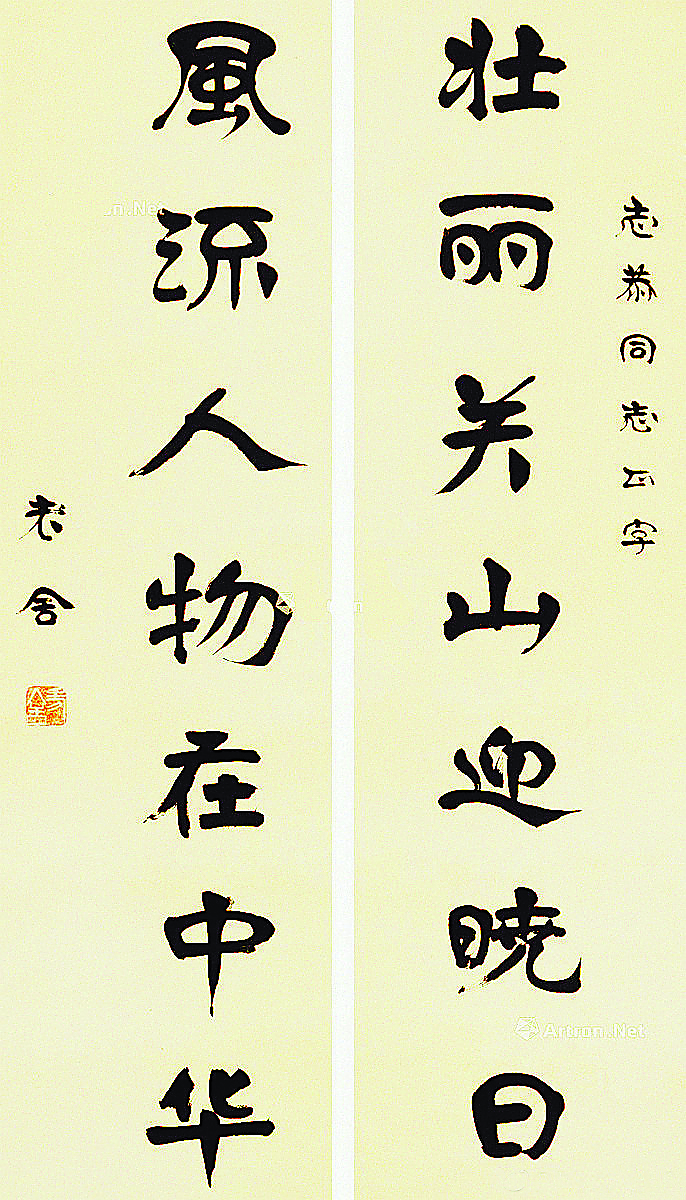 志恭同志正字
壮丽关山迎晓日
風流人物在中华
老舍
Artron.Net